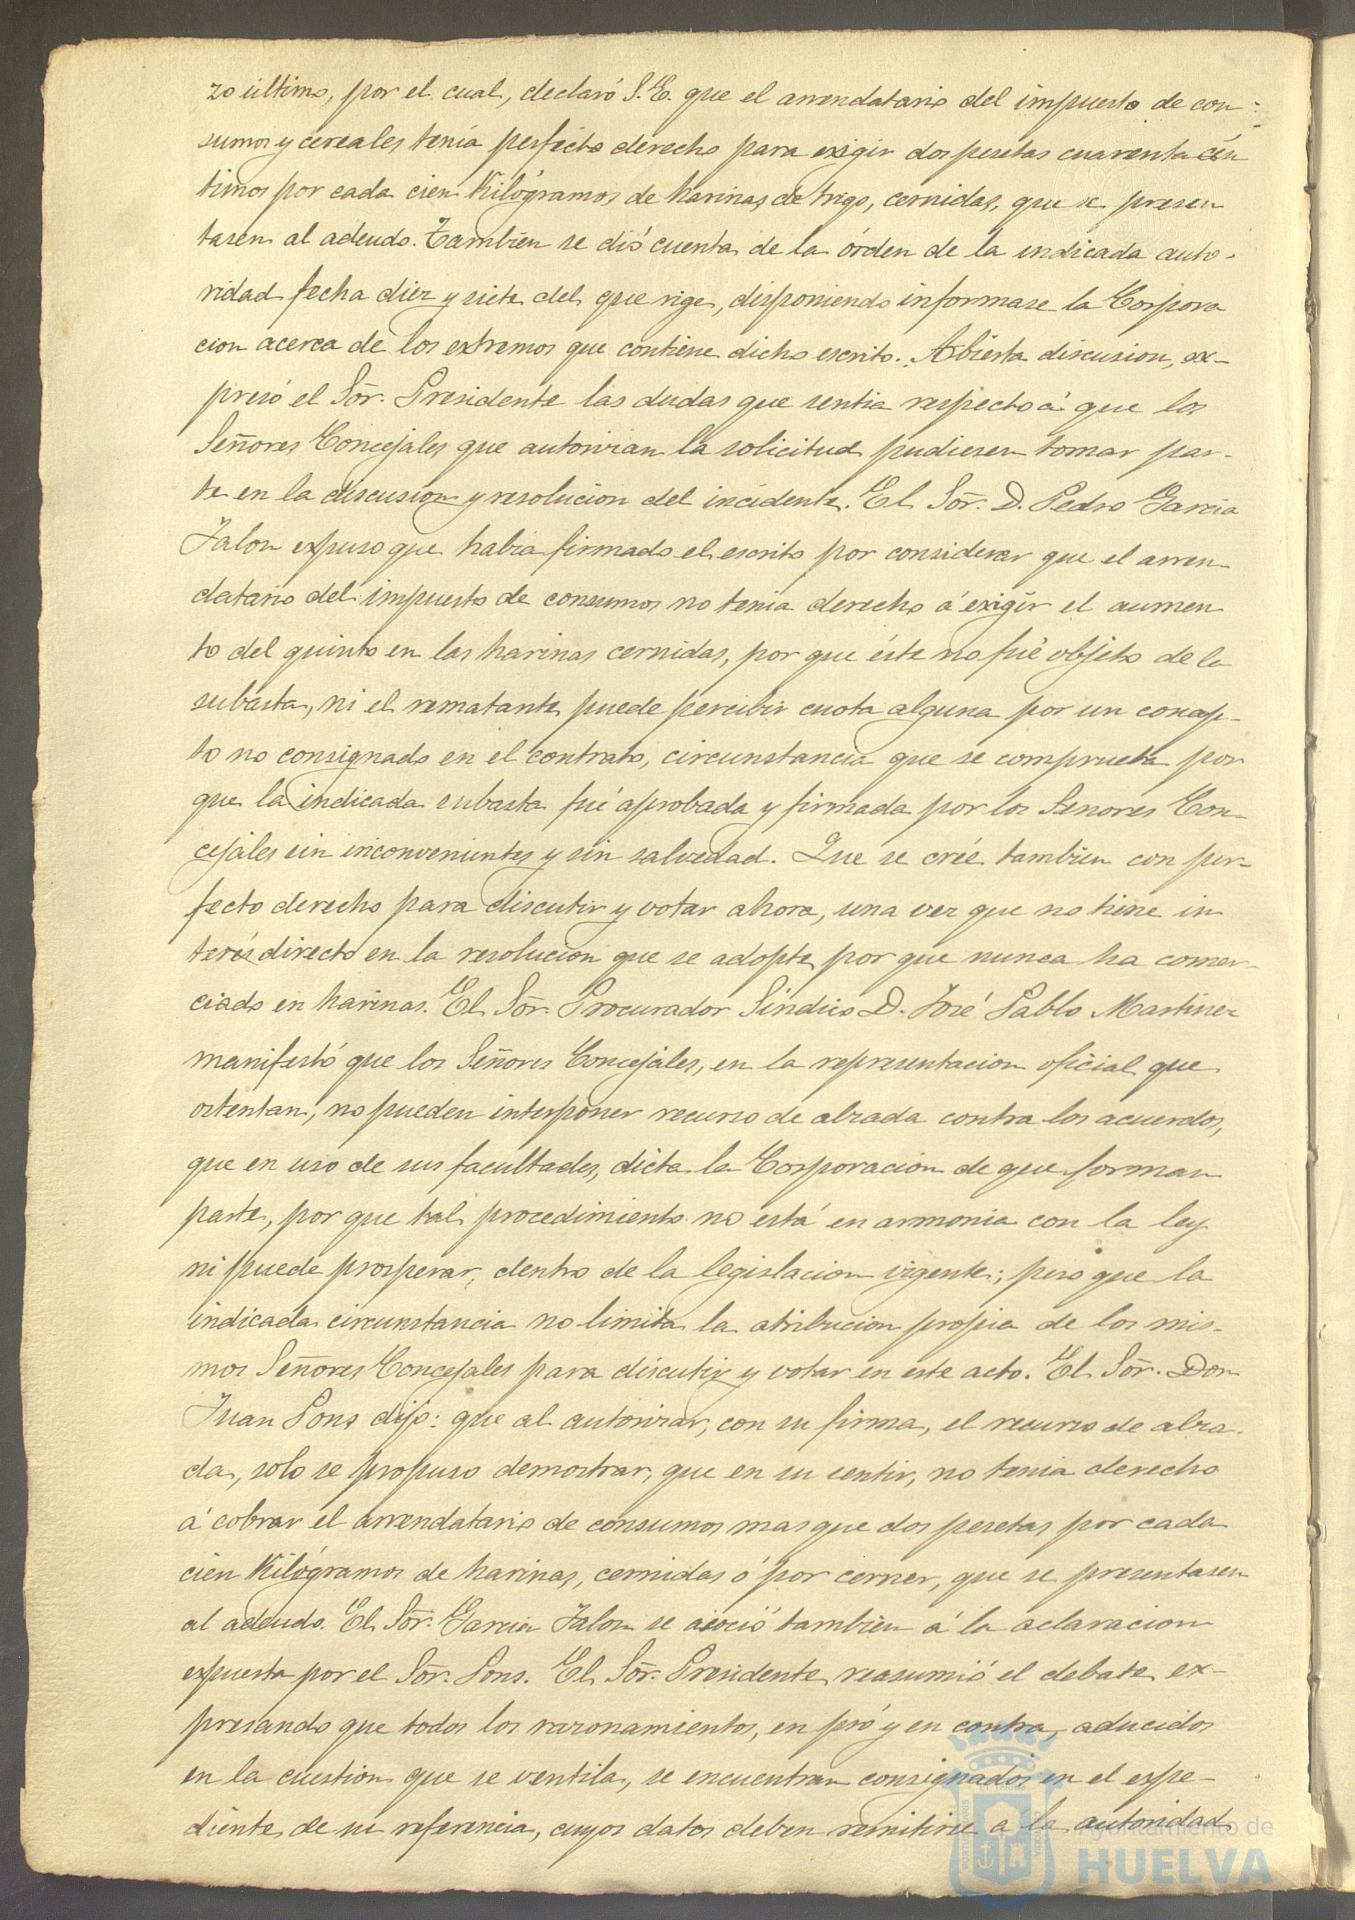 zo último, por el cual, declaró S.E. que el arrendatario del impuesto de con-
sumos y cereales tenía perfecto derecho para exigir dos pesetas cuarenta cén
timos por cada cien Kilógramos de harinas de trigo, cernidas, que se presen
tasen al adeudo. Tambien se dió cuenta de la órden de la indicada auto-
ridad fecha diez y siete del que rige, disponiendo informase la Corpora
cion acerca de los extremos que contiene dicho escrito. Abierta discusion, ex-
presó el Sôr. Presidente las dudas que sentia respecto á que los
Señores Concejales que autorizan la solicitud pudiesen tomar par-
te en la discusion y resolucion del incidente. El Sôr. D. Pedro Garcia
Jalon expuso que habia firmado el escrito por considerar que el arren
datario del impuesto de consumos no tenia derecho á exigir el aumen
to del quinto en las harinas cernidas, por que éste no fué objeto de la
subasta, ni el rematante puede percibir cuota alguna por un concep-
to no consignado en el contrato, circunstancia que se comprueba por
que la indicada subasta fué aprobada y firmada por los Señores Con-
cejales sin inconvenientes y sin salvedad. Que se crée tambien con per-
fecto derecho para discutir y votar ahora, una vez que no tiene in
terés directo en la resolucion que se adopte, por que nunca ha comer-
ciado en harinas. El Sôr. Procurador Síndico D. José Pablo Martinez
manifestó que los Señores Concejales, en la representacion oficial que
ostentan, no pueden interponer recurso de alzada contra los acuerdos,
que en uso de sus facultades, dicta la Corporacion de que forman
parte, por que tal procedimiento no está en armonia con la ley
ni puede prosperar, dentro de la legislacion vigente; pero que la
indicada circunstancia no limita la atribucion propia de los mis-
mos Señores Concejales para discutir y votar en este acto. El Sôr. Don
Juan Pons dijo: que al autorizar, con su firma, el recurso de alza-
da, solo se propuso demostrar, que en su sentir, no tenia derecho
á cobrar el arrendatario de consumos mas que dos pesetas por cada
cien Kilógramos de harinas, cernidas ó por cerner, que se presentasen
al adeudo. El Sôr. Garcia Jalon se asoció tambien á la aclaracion
expuesta por el Sôr. Pons. El Sôr. Presidente reasumió el debate, ex-
presando que todos los razonamientos, en pró y en contra, aducidos
en la cuestion que se ventila, se encuentran consignados en el expe-
diente de su referencia, cuyos datos deben remitirse á la autoridad
Ayuntamiento de
HUELVA